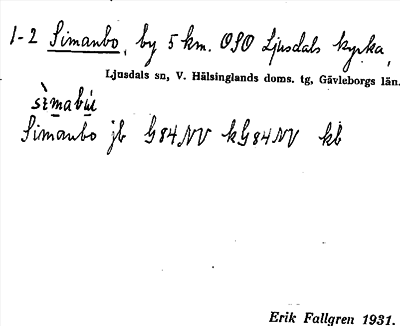 1-2 Simanbo, by 5 km. OSO Ljusdals kyrka,
Ljusdals sn, V. Hälsinglands doms. tg, Gävleborgs län.
Simanbo jb G84NV kG84NV kb
Erik Fallgren 1931.